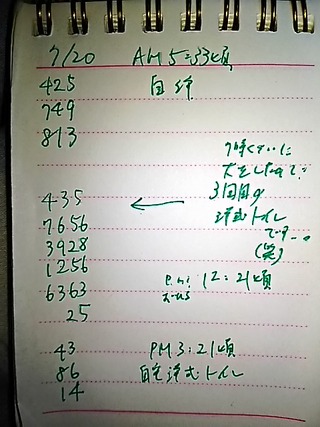 7/20 AM 5:33頃
425 自宅
749
813
7時くらいに
大をしたので、
435 ← 3回目の
7656 洋式トイレ
3928 です…
1256 (笑)
6363 P.M. 12:21頃
25
43 PM 3:21頃
86 自宅洋式トイレ
14